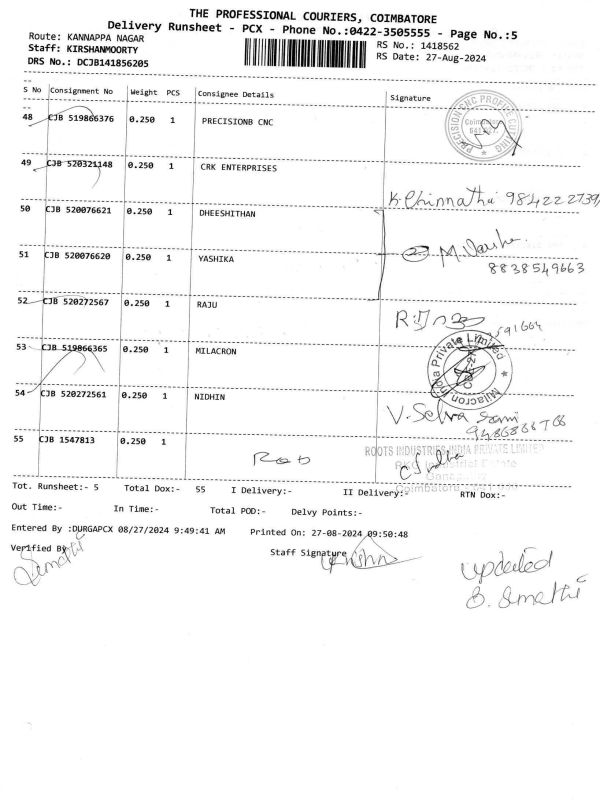 THE PROFESSIONAL COURIERS, COIMBATORE
Delivery Runsheet - PCX - Phone No.:0422-3505555 - Page No.:5
Route: KANNAPPA NAGAR RS No.: 1418562
Staff: KIRSHANMOORTY RS Date: 27-Aug-2024
DRS No.: DCJB141856205
S No Consignment No Weight PCS Consignee Details Signature
48 CJB 519866376 0.250 1 PRECISIONB CNC
PRECISION CNC PROFILE CUTTING
49 CJB 520321148 0.250 1 CRK ENTERPRISES
50 CJB 520076621 0.250 1 DHEESHITHAN
51 CJB 520076620 0.250 1 YASHIKA
8838549663
52 CJB 520272567 0.250 1 RAJU
53 CJB 519866365 0.250 1 MILACRON
Milacron India Private Limited
54 CJB 520272561 0.250 1 NIDHIN
V. Selva
55 CJB 1547813 0.250 1
ROOTS INDUSTRIES INDIA PRIVATE LIMITED
Tot. Runsheet:- 5 Total Dox:- 55 I Delivery:- II Delivery:- RTN Dox:-
Out Time:- In Time:- Total POD:- Delvy Points:-
Entered By :DURGAPCX 08/27/2024 9:49:41 AM Printed On: 27-08-2024 09:50:48
Verified By Staff Signature
updated